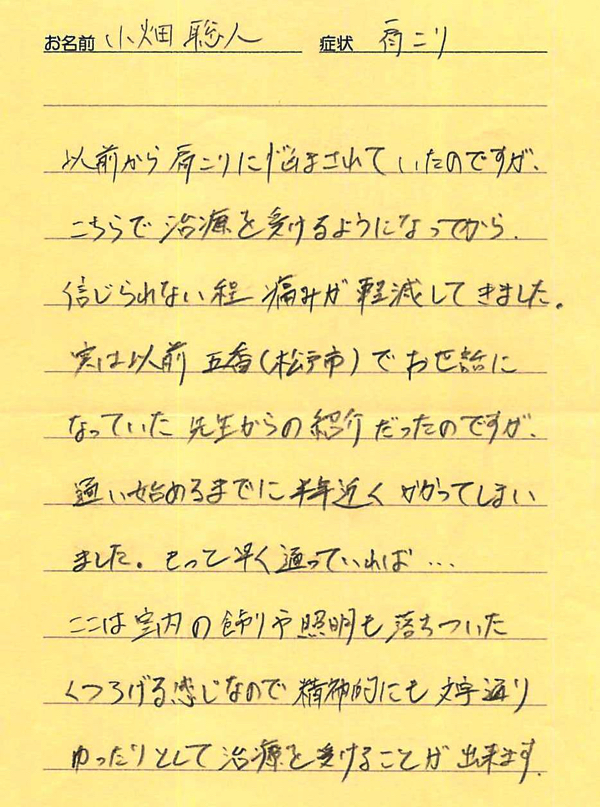 お名前 小畑 聡人 症状 肩こり
以前から肩こりに悩まされていたのですが、
こちらで治療を受けるようになってから、
信じられない程痛みが軽減してきました。
実は以前五香(松戸市)でお世話に
なっていた先生からの紹介だったのですが、
通い始めるまでに半年近くかかってしまい
ました。もっと早く通っていれば…
ここは室内の飾りや照明も落ちついた
くつろげる感じなので精神的にも文字通り
ゆったりとして治療を受けることが出来ます。